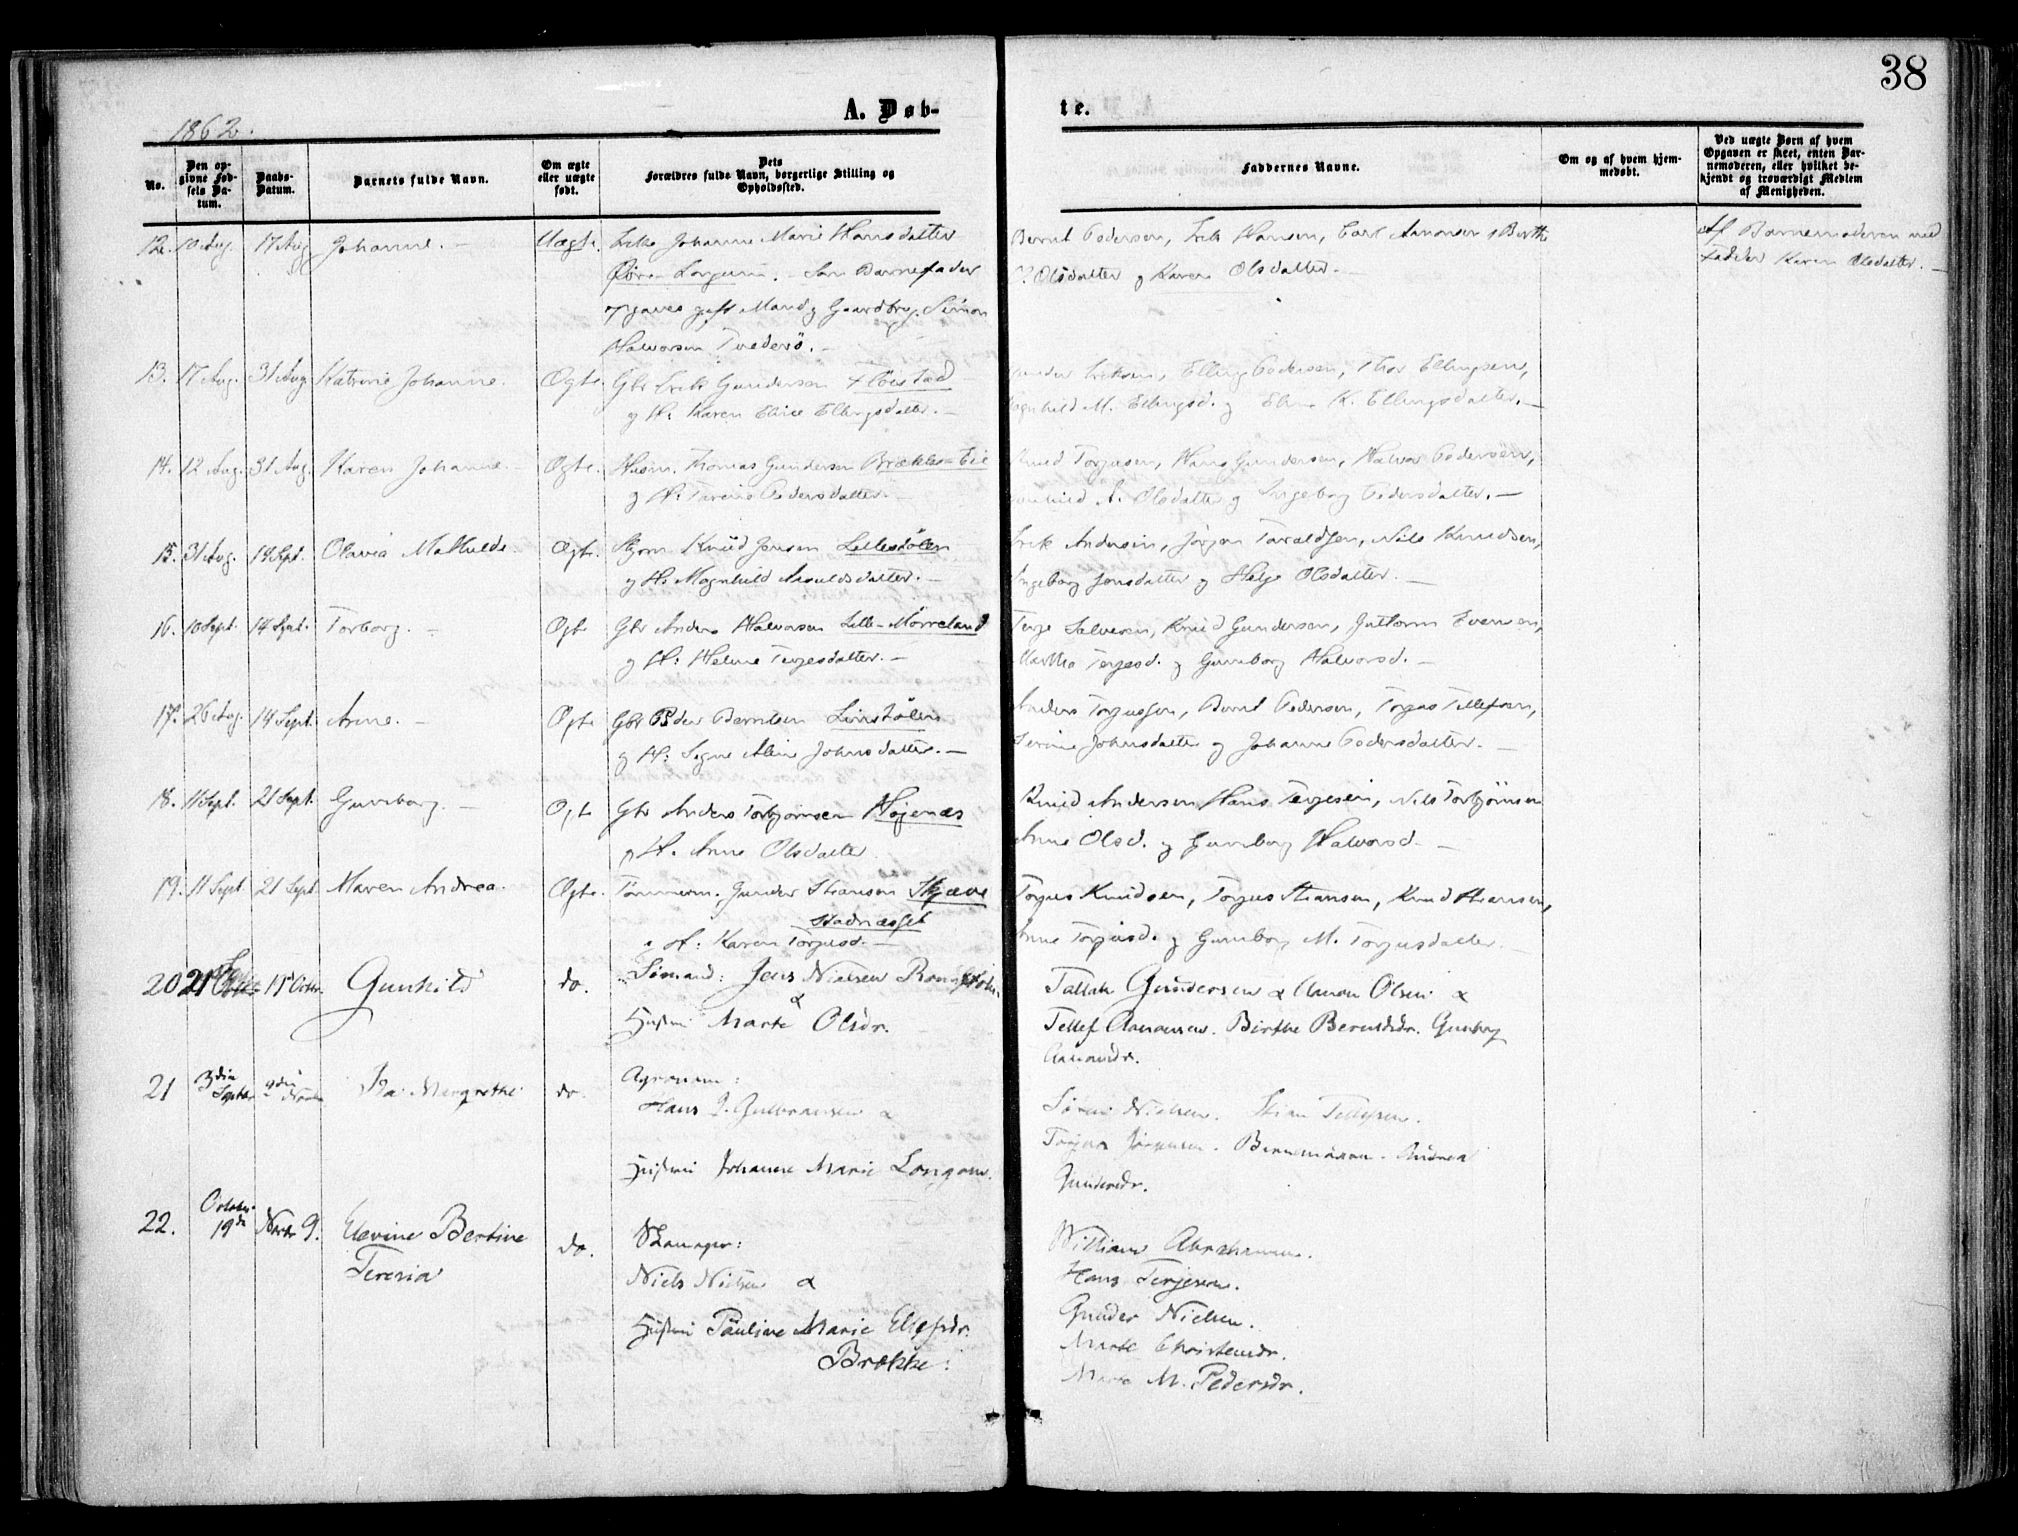 38
A. Døb-
te.
1862.
No.
Den op-
givne Fød-
sels Da-
tum.
Daabs-
Datum.
Barnets fulde Navn.
Om ægte
eller uægte
født.
Dets
Forældres fulde Navn, borgerlige Stilling og
Opholdssted.
Faddernes Navne.
Om og af hvem hjem-
medøbt.
Ved uægte Børn af hvem
Opgaven er skeet, enten Bar-
nemoderen, eller hvilket be-
kjendt og troværdigt Medlem
af Menigheden.
12. 10 Aug. 17 Aug Johanne. – Uægte. Johanne Marie Hansdatter
Longum. – Barnefader
opgaves gift Mand og Gaardbrg. Simon
Halvorsen Tvedersö. –
Bernt Pedersen, Hansen, Carl Aanonsen, Berthe
Olsdatter og Karen Olsdatter. –
Af Barnemoderen med
Fadder Karen Olsdatter. –
13. 17 Aug. 31 Aug Katrine Johanne. Ægte. Gbr Erik Gundersen Flöistad
og H: Karen Eline Ellingsdatter. –
Eriksen, Elling Pedersen, Thor Ellingsen,
M. Ellingsd. og K. Ellingsdatter. –
14. 12 Aug. 31 Aug. Karen Johanne. – Ægte. Husm. Thomas Gundersen Brække-Eie
og H: Pedersdatter. –
Knud Torjusen, Hans Gundersen, Halvor Pedersen,
A. Olsdatter og Ingeborg Pedersdatter. –
15. 31 Aug. 14 Sept. Olavia Mathilde. Ægte. Knud Jensen Lillestölen
og H: Magnhild Arnuldsdatter. –
Erik Andersen, Jörgen Taraldsen, Nils Knudsen,
Ingeborg Jensdatter og Helje Olsdatter. –
16. 10 Sept. 14 Sept. Torborg. – Ægte Gbr Anders Halvorsen Lille-Mörreland
og H: Helene Terjesdatter. –
Terje Salvesen, Knud Gundersen, Guttorm Evensen,
Martha Terjesd. og Gunborg Halvorsd. –
17. 26 Aug. 14 Sept. Anne. – Ægte Gbr Peder Berntsen Linstölen
og H: Signe Aline Johnsdatter. –
Anders Torjussen, Bernt Pedersen, Torjus Tellefsen,
Serine Johnsdatter og Johanne Pedersdatter. –
18. 11 Sept. 21 Sept. Gunborg. – Ægte Gbr Anders Torbjörnsen Högenæs
og H. Anne Olsdatter
Knud Andersen, Hans Terjesen, Nils Torbjörnsen
Anne Olsd. og Gunborg Halvorsd. –
19. 11 Sept. 21 Sept. Maren Andrea. Ægte. Tömmerm. Gunder Stiansen Skjæve
stadnæsset
og H: Karen Torjusd. –
Torjus Knudsen, Torjus Stiansen, Knud Stiansen,
Anne Torjusd. og Gunborg M. Torjusdatter. –
20 21 19 Octbr. Gunhild do. Sömand: Jens Nielsen
&
Hustru Marte Olsdr.
Tallak Gundersen & Aanon Olsen &
Tellef Aanonsen. Birthe Berntsdr. Gunborg
Aanonsdr.
21 3die Septbr 9de Novbr Ida Margrethe do. Agronom:
Hans J. Gulbransen &
Hustru Johanne Marie Longum.
Sören Nielsen. Stian Tellefsen.
Torjus Jörgensen. Barnemoren. Andrea
Gundersdr.
22. October 19de Novbr 9. Elevine Bertine
Teresia do. Skomager:
Niels Nielsen &
Hustru Pauline Marie Elefsdr.
Brække:
William Abrahamsen.
Hans Terjesen.
Gunder Nielsen.
Marte Christensdr.
Marte M. Pedersdr.